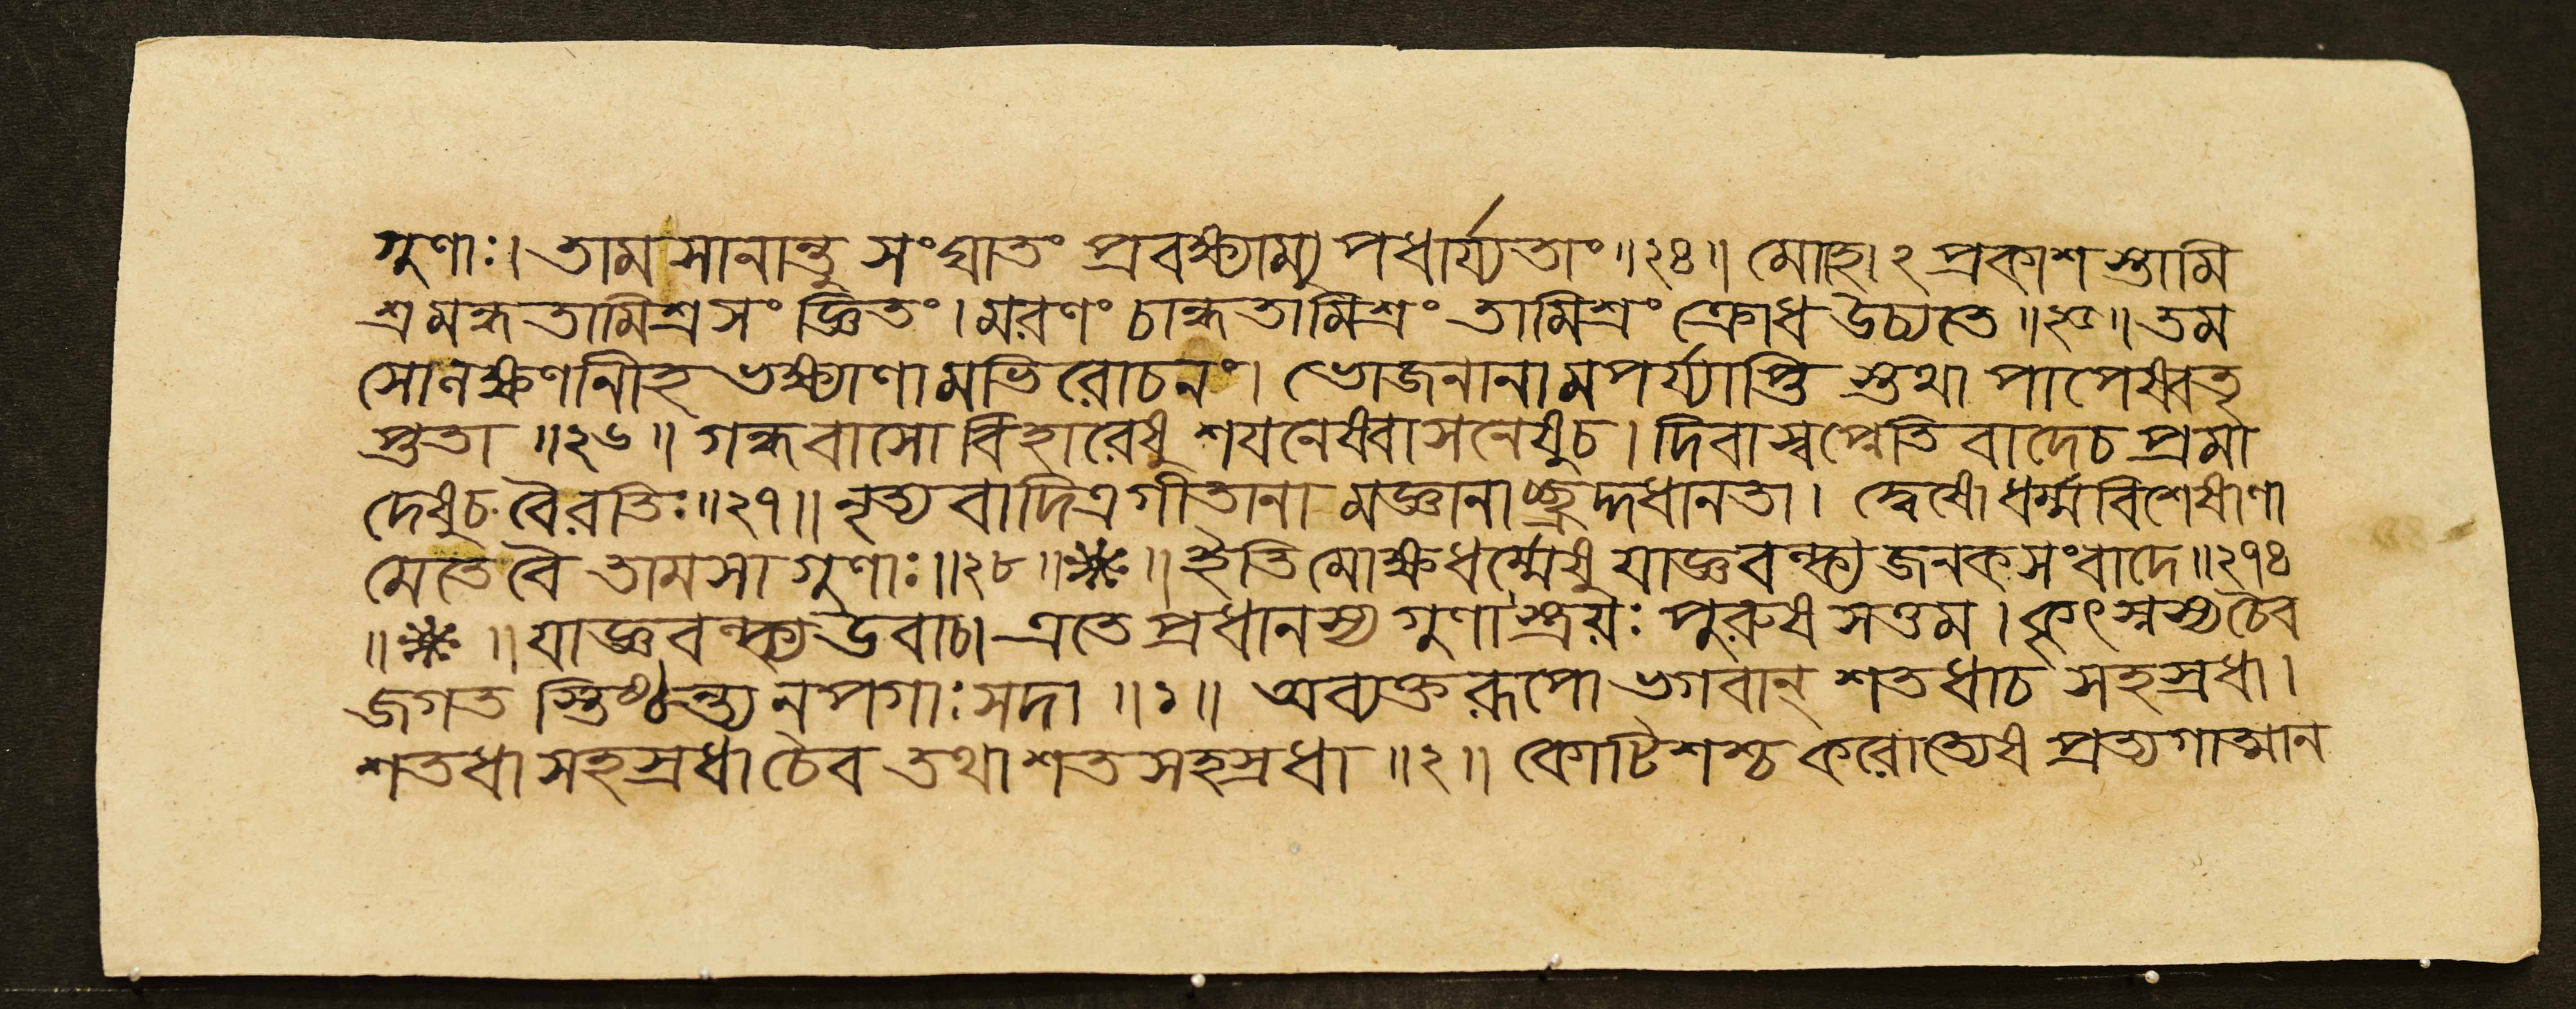 গুণাঃ। তামসানান্তু সংঘাতং প্রবক্ষ্যাম্যুপধার্য্যতাং॥২৪॥ মোহাঽপ্রকাশস্তামি
শ্রমন্ধতামিশ্রসংজ্ঞিতং। মরণং চান্ধতামিশ্রং তামিশ্রং ক্রোধ উচ্যতে॥২৫॥ তম
সোনক্ষণানীহ ভক্ষ্যাণামভিরোচনং। ভোজনানামপর্য্যাপ্তি স্তথা পাপেষ্বতৃ
প্ততা॥২৬॥ গন্ধবাসো বিহারেষু শযনেষ্বাসনেষুচ। দিবাস্বপ্নেতিবাদেচ প্রমা
দেষুচ বৈরতিঃ॥২৭॥ নৃত্যবাদিত্রগীতানা মজ্ঞানাচ্ছ্রদ্দধানতা। দ্বেষো ধর্ম্মবিশেষাণা
মেতে বৈ তামসা গুণাঃ॥২৮॥ ❋ ॥ ইতি মোক্ষধর্ম্মেষু যাজ্ঞবল্ক্যজনকসংবাদে॥২৭৪
॥ ❋ ॥ যাজ্ঞবল্ক্যউবাচ। এতে প্রধানস্য গুণাস্ত্রয়ঃ পুরুষসত্তম। কৃৎস্নস্যচৈব
জগত স্তিষ্ঠন্ত্যনপগাঃ সদা॥১॥ অব্যক্তরূপো ভগবান্ শতধাচ সহস্রধা।
শতধা সহস্রধাচৈব তথা শতসহস্রধা॥২॥ কোটিশশ্চ করোত্যেষ প্রত্যগাত্মান